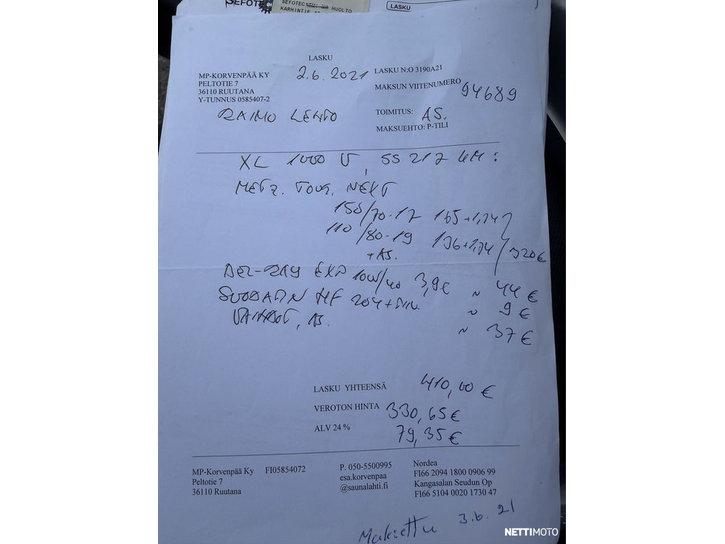 SEFOTEC
KARHINTIE
LASKU
LASKU
MP-KORVENPÄÄ KY
PELTOTIE 7
36110 RUUTANA
Y-TUNNUS 0585407-2
2.6.2021
LASKU N:O 3190A21
MAKSUN VIITENUMERO
94689
RAIMO LEHTO
TOIMITUS: AS.
MAKSUEHTO: P-TILI
XL 1000 V, 55 217 KM:
METZ. TOUR. NEXT
150/70-17 165+1,74
110/80-19 136+1,74 / 320€
+AS.
EXP 10W/40 3,9€ ~ 44 €
SUODATIN HF 204 ~ 9 €
~ 37 €
LASKU YHTEENSÄ 410,00 €
VEROTON HINTA 330,65 €
ALV 24 % 79,35 €
MP-Korvenpää Ky FI05854072
Peltotie 7
36110 Ruutana
P. 050-5500995
esa.korvenpaa
@saunalahti.fi
Nordea
FI66 2094 1800 0906 99
Kangasalan Seudun Op
FI66 5104 0020 1730 47
Maksettu 3.6.21
NETTIMOTO